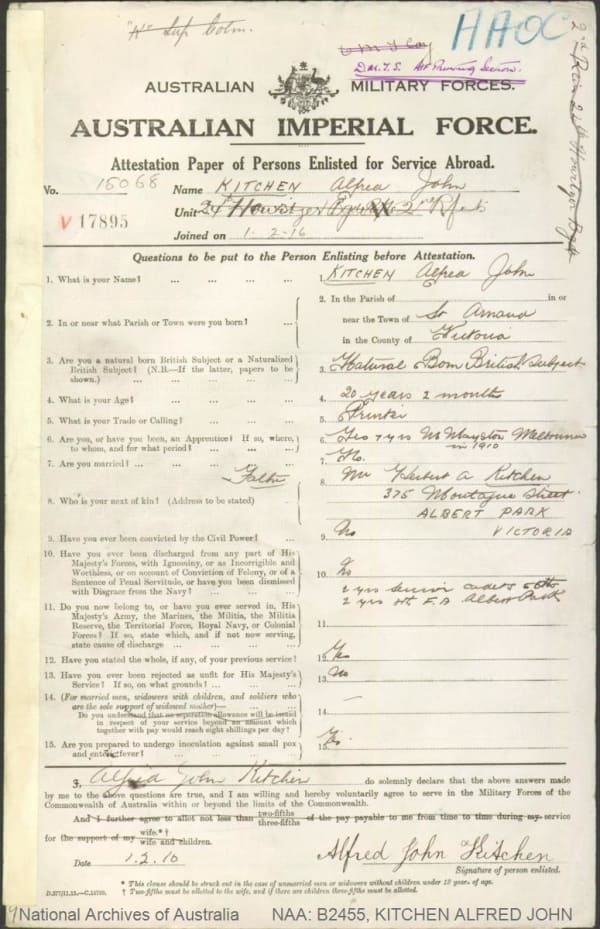 "A" Sup Colm.
HAOC
AUSTRALIAN MILITARY FORCES.
AUSTRALIAN IMPERIAL FORCE.
Attestation Paper of Persons Enlisted for Service Abroad.
No. 15068 Name KITCHEN Alfred John
V 17895
Unit 2nd Rfts
Joined on 1-2-16
Questions to be put to the Person Enlisting before Attestation.
1. What is your Name? ... ... ... ... 1. KITCHEN Alfred John
2. In or near what Parish or Town were you born? ... 2. In the Parish of in or
near the Town of St Arnaud
in the County of Victoria
3. Are you a natural born British Subject or a Naturalized British Subject? (N.B.—If the latter, papers to be shown.) ... ... ... ... 3. Natural Born British Subject
4. What is your Age? ... ... ... ... 4. 20 years 2 months
5. What is your Trade or Calling? ... ... ... 5. Printer
6. Are you, or have you been, an Apprentice? If so, where, to whom, and for what period? ... ... ... 6. Yes 7 yrs Melbourne
in 1910
7. Are you married? ... ... ... ... 7. No.
8. Who is your next of kin? (Address to be stated) Father 8. Mr Herbert A Kitchen
375 Montague Street
ALBERT PARK
VICTORIA
9. Have you ever been convicted by the Civil Power? ... 9. No
10. Have you ever been discharged from any part of His Majesty's Forces, with Ignominy, or as Incorrigible and Worthless, or on account of Conviction of Felony, or of a Sentence of Penal Servitude, or have you been dismissed with Disgrace from the Navy? ... ... ... 10. No
11. Do you now belong to, or have you ever served in, His Majesty's Army, the Marines, the Militia, the Militia Reserve, the Territorial Force, Royal Navy, or Colonial Forces? If so, state which, and if not now serving, state cause of discharge ... ... ... 11.
2 yrs senior cadets
2 yrs F.A Albert Park
12. Have you stated the whole, if any, of your previous service? 12. Yes
13. Have you ever been rejected as unfit for His Majesty's Service? If so, on what grounds? ... ... 13. No
14. (For married men, widowers with children, and soldiers who are the sole support of widowed mother)— 14. —
Do you understand that no separation allowance will be issued in respect of your service beyond an amount which together with pay would reach eight shillings per day?
15. Are you prepared to undergo inoculation against small pox and enteric fever? ... ... ... 15. Yes
I, Alfred John Kitchen do solemnly declare that the above answers made
by me to the above questions are true, and I am willing and hereby voluntarily agree to serve in the Military Forces of the
Commonwealth of Australia within or beyond the limits of the Commonwealth.
And I further agree to allot not less than two-fifths three-fifths of the pay payable to me from time to time during my service
for the support of my wife.*† wife and children.
Date 1.2.16 Alfred John Kitchen
Signature of person enlisted.
* This clause should be struck out in the case of unmarried men or widowers without children under 18 years of age.
D.377/11.15.—C.14720. † Two-fifths must be allotted to the wife, and if there are children three-fifths must be allotted.
National Archives of Australia NAA: B2455, KITCHEN ALFRED JOHN